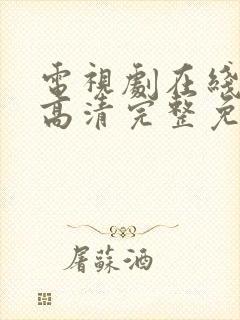 電視劇在綫
高清完整免
屠蘇酒